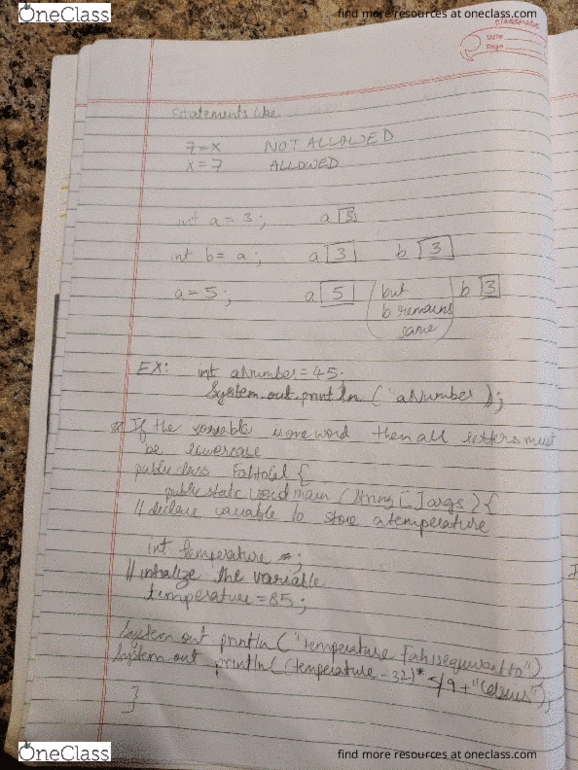 OneClass
find more resources at oneclass.com
Date
Page
Statements like
7=x NOT ALLOWED
x=7 ALLOWED
int a=3; a 3
int b= a; a 3 b 3
a=5; a 5 (but b 3
b remains
same)
EX: int aNumber=45.
System.out.println ("aNumber );
If the variable is one word then all letters must
be lowercase
public class FahToCel {
public static void main (String [ ] args ) {
// declare variable to store a temperature
int temperature ;
// initialize the variable
temperature = 85;
System out println ("temperature Fah is equivant to")
System out println( (temperature - 32) * /9 + "Celsius");
}
OneClass
find more resources at oneclass.com